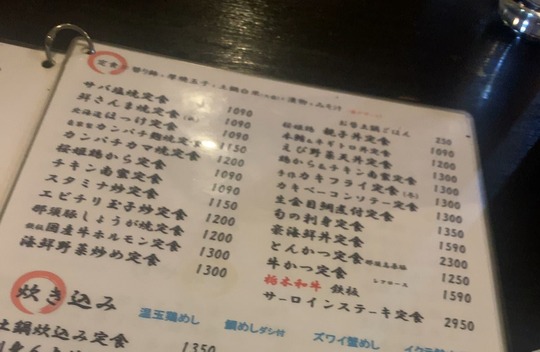 定食 替り鉢+厚焼玉子+土鍋白米+漬物+みそ汁
サバ塩焼定食 1090
鮮さんま焼定食 1090
北海道ほっけ定食 1090
カンパチ麹焼定食 1150
カンパチカマ焼定食 1200
桜姫鶏から定食 1090
チキン南蛮定食 1090
スタミナ炒定食 1150
エビチリ玉子炒定食 1200
那須豚しょうが焼定食 1200
国産牛ホルモン定食 1300
海鮮野菜炒め定食 1300
お替土鍋ごはん 250
桜姫鶏 親子丼定食 1090
本鮪ユキギトロ丼定食 1200
えび野菜天丼定食 1300
鶏から&チキン南蛮定食 1300
カキフライ定食 1300
カキベーコンソテー定食 1300
生金目鯛煮付定食 1350
旬の刺身定食 1590
豪海鮮丼定食 2300
とんかつ定食 1250
牛かつ定食 1590
栃木和牛 鉄板
サーロインステーキ定食 2950
炊き込み
温玉鶏めし
鯛めしダシ付
ズワイ蟹めし
土鍋炊込み定食 1350